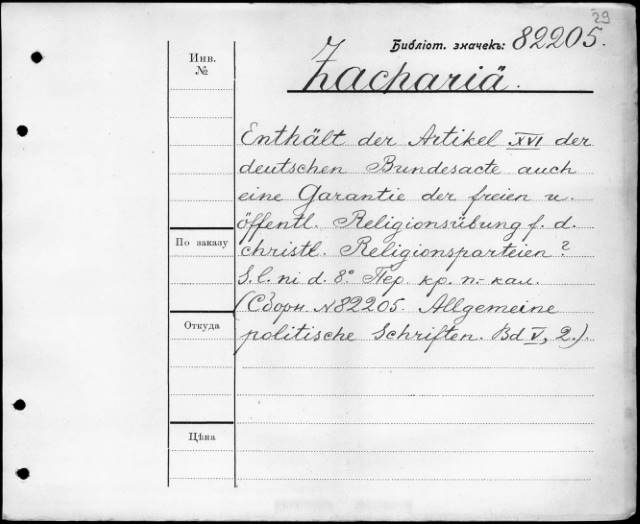 29
Библіот. значекъ: 82205.
Инв. №
Zachariä.
Enthält der Artikel XVI der
deutschen Bundesacte auch
eine Garantie der freien u.
öffentl. Religionsübung f. d.
По заказу
christl. Religionsparteien?
S. l. ni d. 8° Пер. кр. п.-кал.
(Сборн. №82205. Allgemeine
Откуда
politische Schriften. Bd V, 2.).
Цѣна